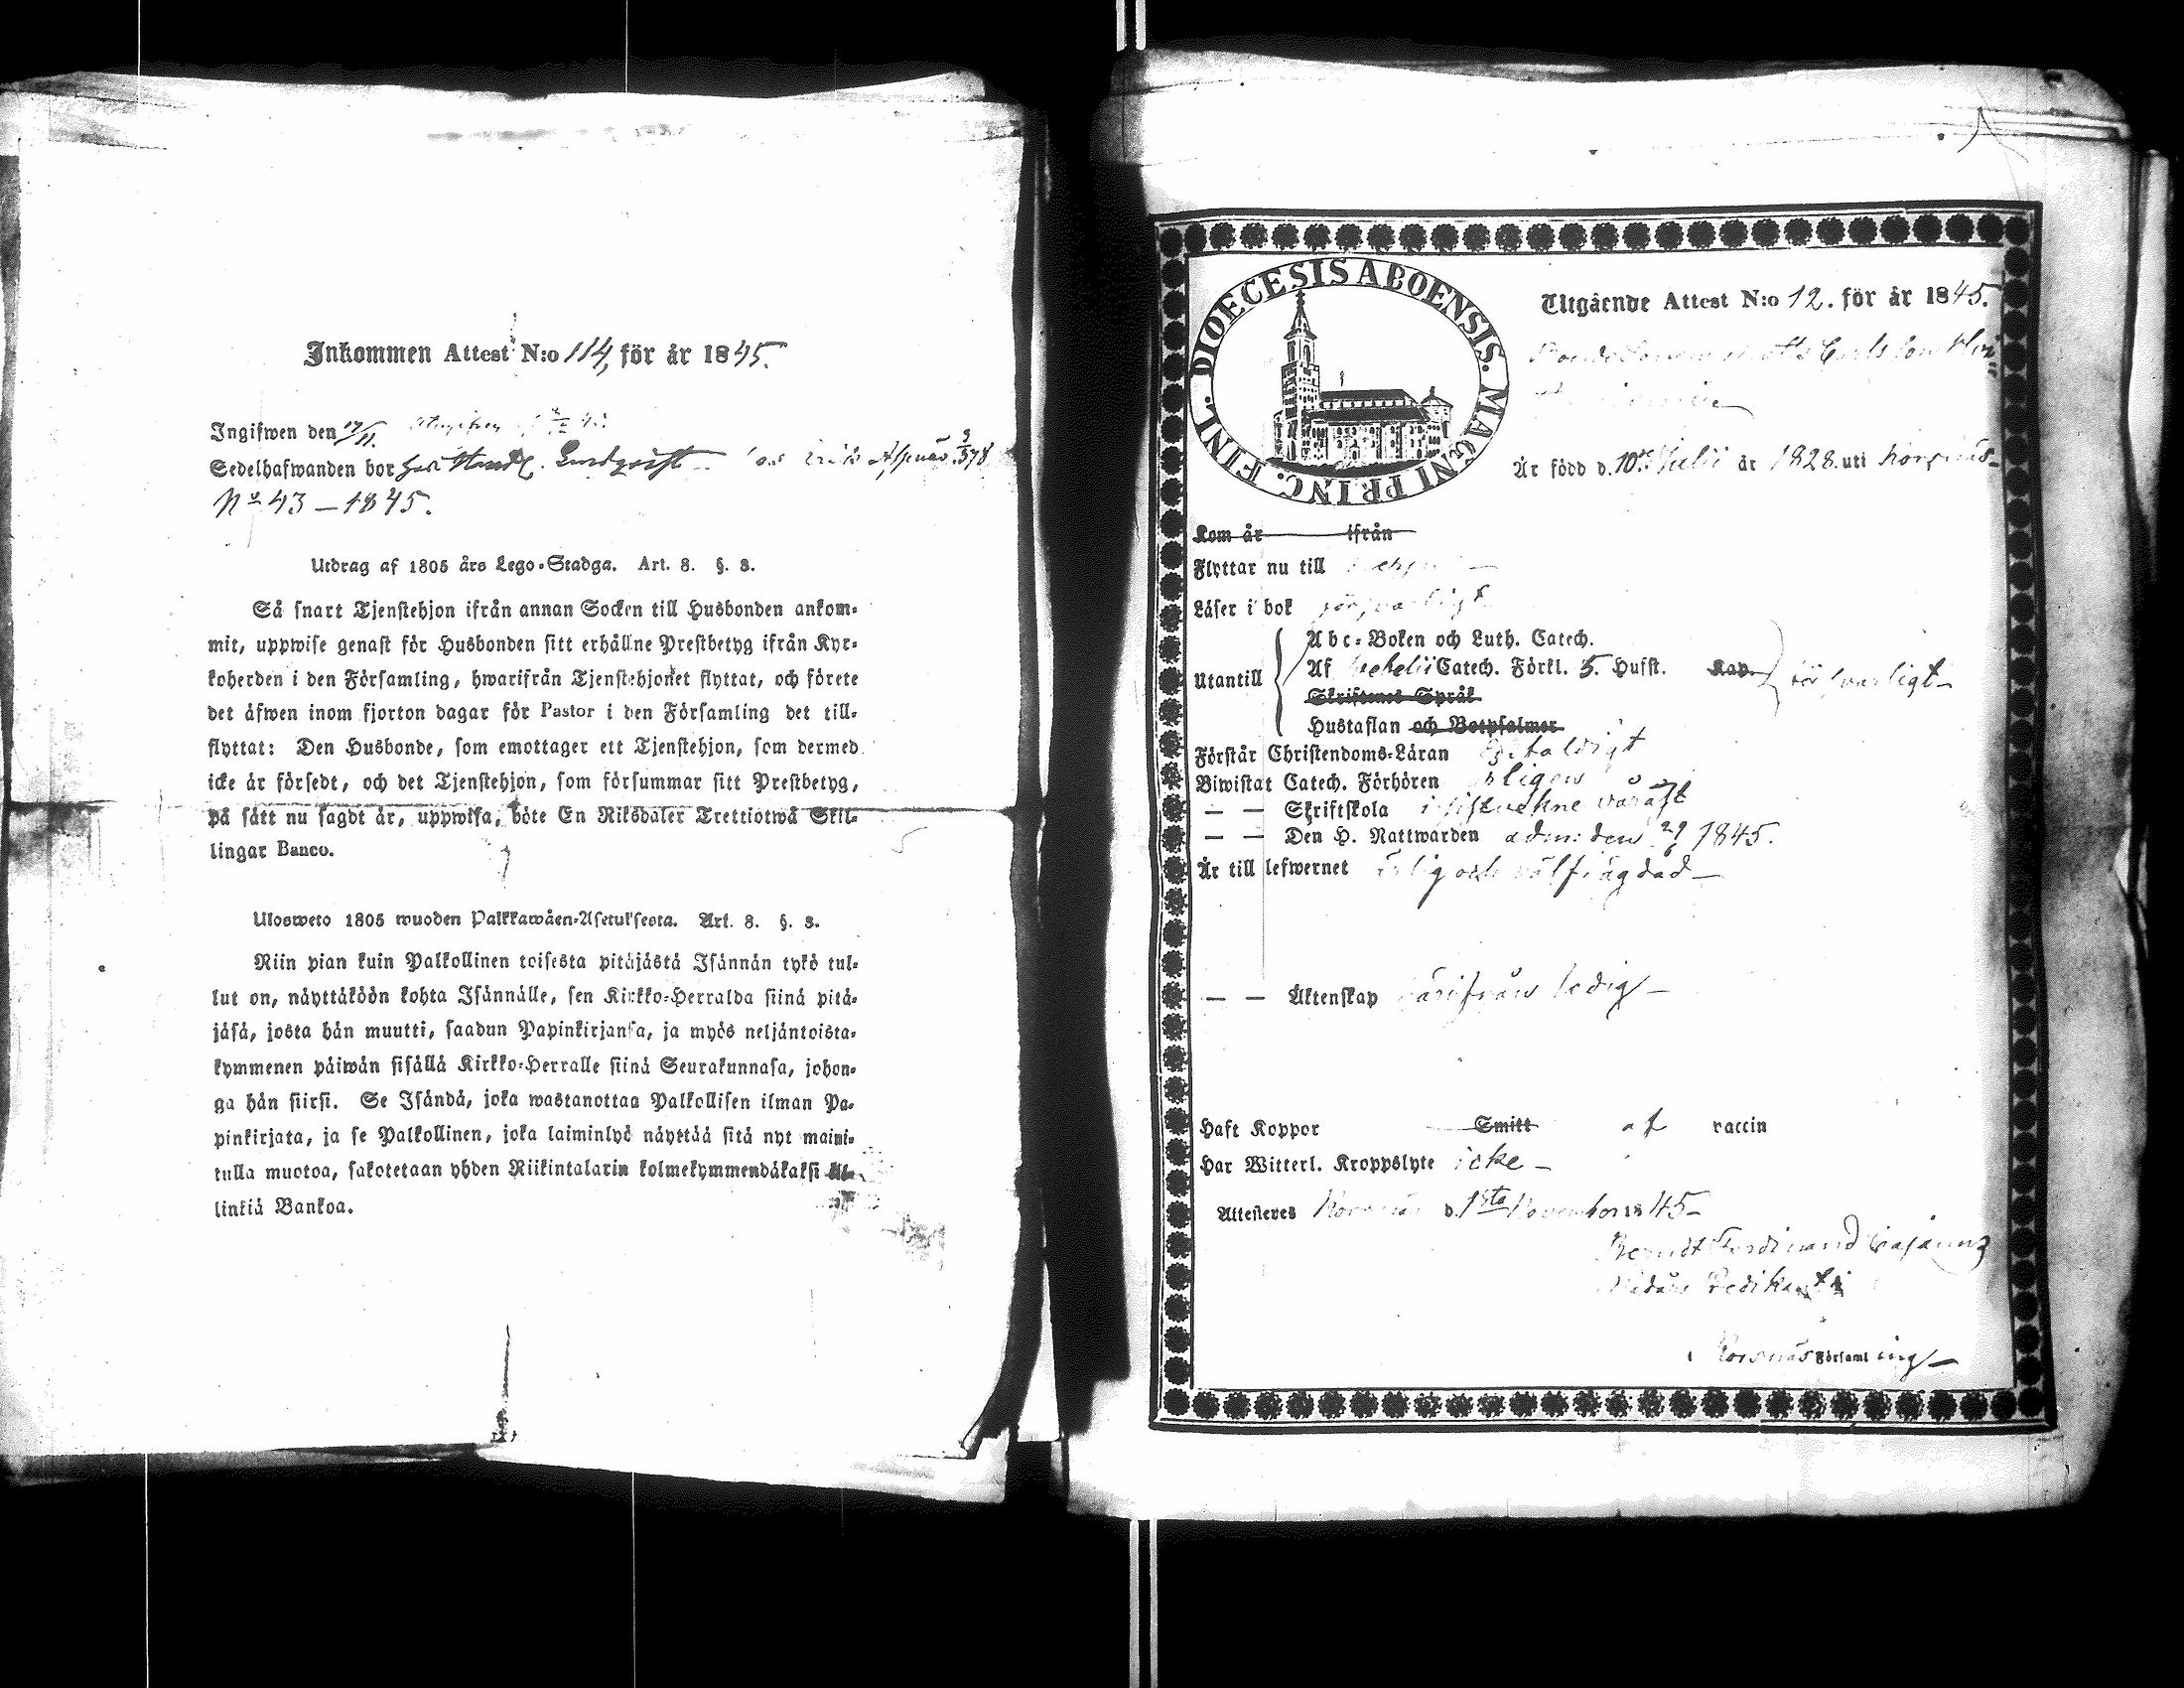 Inkommen Attest N:o 114, för år 1845.
Ingifwen den 17/11.
Sedelhafwanden bor hos Handl. Lundqvist
No 43 – 1845.
Utdrag af 1805 års Lego-Stadga. Art. 8. §. 3.
Så snart Tjenstehjon ifrån annan Socken till Husbonden ankom-
mit, uppwise genast för Husbonden sitt erhållne Prestbetyg ifrån Kyr-
koherden i den Församling, hwarifrån Tjenstehjonet flyttat, och förete
det äfwen inom fjorton dagar för Pastor i den Församling det till-
flyttat: Den Husbonde, som emottager ett Tjenstehjon, som dermed
icke är försedt, och det Tjenstehjon, som försummar sitt Prestbetyg,
på sätt nu sagdt är, uppwisa, böte En Riksdaler Trettiotwå Skil-
lingar Banco.
Ulosweto 1805 wuoden Palkkawäen-Asetuksesta. Art. 8. §. 3.
Niin pian kuin Palkollinen toisesta pitäjästä Isännän tykö tul-
lut on, näyttäköön kohta Isännälle, sen Kirkko-Herralda siinä pitä-
jäsä, josta hän muutti, saadun Papinkirjansa, ja myös neljäntoista-
kymmenen päiwän sisällä Kirkko-Herralle siinä Seurakunnasa, johon-
ga hän siirsi. Se Isändä, joka wastanottaa Palkollisen ilman Pa-
pinkirjata, ja se Palkollinen, joka laiminlyö näyttää sitä nyt maini-
tulla muotoa, sakotetaan yhden Riikintalarin kolmekymmendäkaksi kil-
linkiä Bankoa.
DIOECESIS ABOENSIS. MAGNI PRINC. FINL.
Utgående Attest N:o 12. för år 1845.
Är född d. 10de Julii år 1828. uti Korsnäs
Kom år ifrån
Flyttar nu till
Läser i bok försvarligt
Abc-Boken och Luth. Catech.
Utantill Af Catech. Förkl. 5. Hufst. Kap. försvarligt
Skriftenes Språk
Hustaflan och Botpsalmer
Förstår Christendoms-Läran
Biwistat Catech. Förhören
— — Skriftskola
— — Den H. Nattwarden adm: den 29/6 1845.
Är till lefwernet ärlig och välfrägdad
— — Äktenskap härifrån ledig
Haft Koppor Smitt af vaccin
Har Witterl. Kroppslyte icke
Attesteres Korsnäs d. 1sta November 1845
Berndt Ferdinand
i Korsnäs Församling